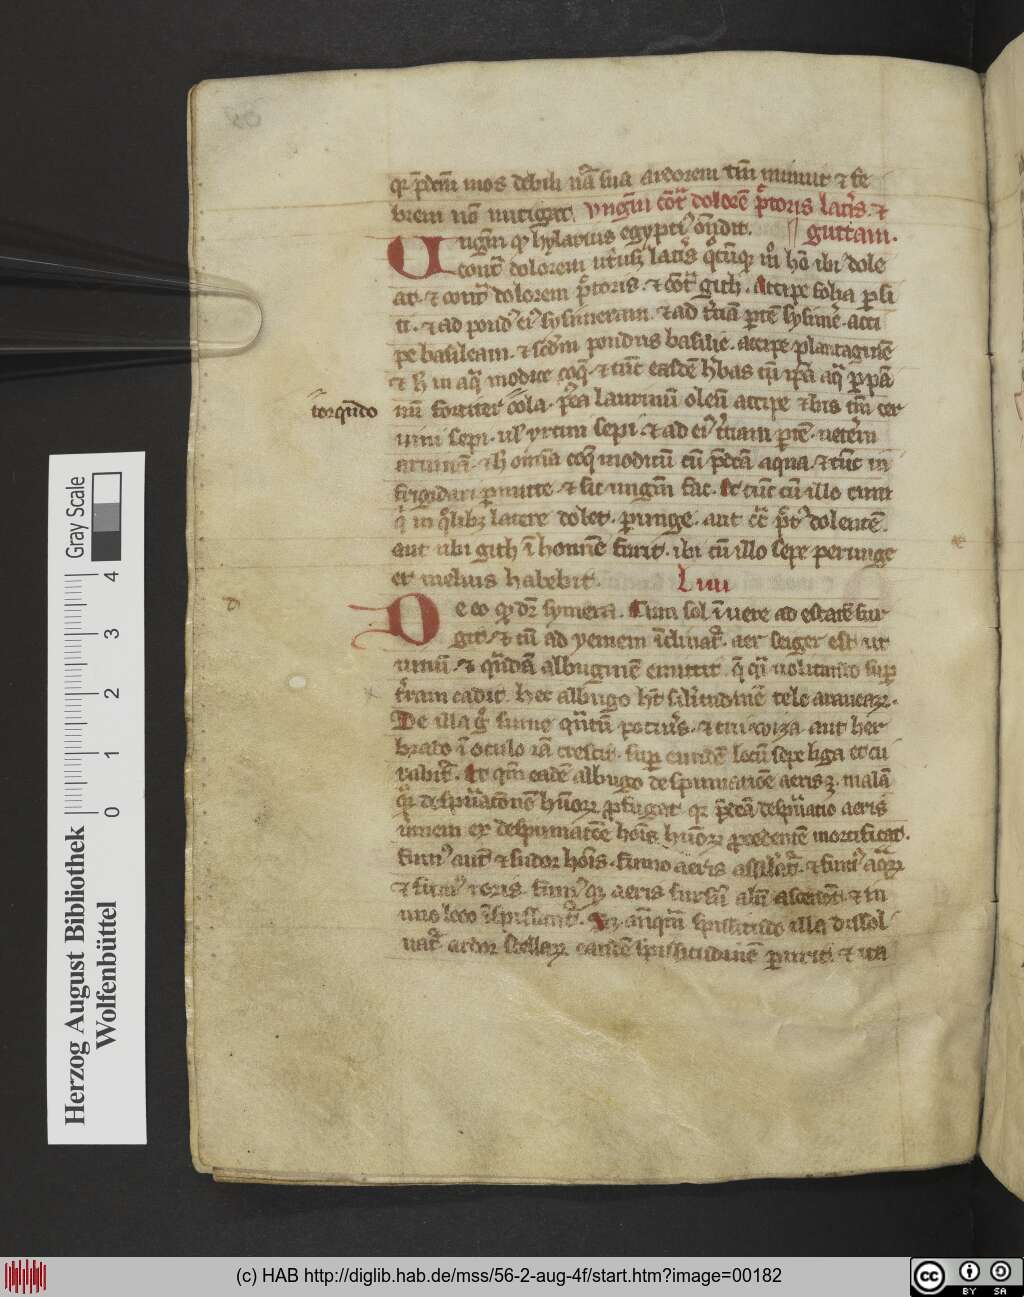 qr p̄dcm̄ mos debili nā sua ardorem tm̄ minuit ⁊ fe
brem nō mitigat. Vngm̄ cōt̄ dolorē p̄toris lat̄is ⁊
guttam.
Ungm̄ qđ hylarius egypti⁹ on̄dit.
cont̄ dolorem ut'usq; lat̄is q̄cūq; m̄ hō ibi dole
at. ⁊ cont̄ dolorem p̄toris. ⁊ cōt̄ giht. Accipe folia ꝑsi
ci. ⁊ ad pond⁹ ei⁹ sysimeram. ⁊ ad t̄ciā ꝑtē sysimē. acci
pe basileam. ⁊ scdm̄ pondus basilie. accipe plantaginē
⁊ h̄ in aq̄ modice coq̄. ⁊ tūc easdē h̄bas cū ip̄a aq̄ ꝑ pā
torq̄ndo
nū fortiter cola. p̄ea laurinū oleū accipe ⁊ bis tm̄ cer
uini sepi. ul' yrcini sepi. ⁊ ad ei⁹ t̄ciam ꝑtē. uet̄em
aruinā. ⁊ h̄ om̄ia coq̄ modicū cū p̄dcā aqua. ⁊ tūc in
frigidari ꝑmitte. ⁊ sic ungm̄ fac. Et tūc cū illo eum
q̄ in q̄libz latere dolet. ꝑunge. aut cc̄ p̄t⁹ dolentē.
aut ubi giht ī homīe furit. ibi cū illo sepe perunge
et melius habebit. Liiii
De eo qđ dr̄ symera. Cum sol ī uere ad estatē sur
git. ⁊ cū ad yemem īclinat̄. aer seiger est ut
uinū. ⁊ q̄ndā albuginē emittit. q̄ q̄i uolitando suꝑ
t̄ram cadit. hec albugo h̄t silitudinē tele aranearꝝ.
De illa g̊ sume q̄ntū potueris. ⁊ cui wiza aut her
brato ī oculo iā crescit. suꝑ eundē locū sepe liga et cu
rabit̄. Et qm̄ eadē albugo despumatiōe aeris ē. malā
q̄r despumatōnē humorꝝ ꝓfugat qr p̄dcā despumatio aeris
uinem ex despumatōe hōis humorꝝ ꝓcedentē mortificat.
fumus aut̄ ⁊ sudor hōis. fumo aeris assilat̄. ⁊ fumi⁹ aq̄rꝝ
⁊ fum⁹ roris fumi⁹ qz aeris sursū alti ascendit ⁊ in
uno loco īspissant̄. Sz anq̄m spissitudo illa dissol
uat̄ ardor stellarꝝ eandē spissitudinē ꝑurit. ⁊ ita
Herzog August Bibliothek
Wolfenbüttel
0 1 2 3 4
Gray Scale
(c) HAB http://diglib.hab.de/mss/56-2-aug-4f/start.htm?image=00182
cc BY SA